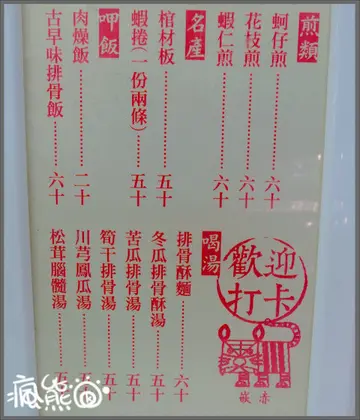 煎類
蚵仔煎⋯⋯⋯六十
花枝煎⋯⋯⋯六十
蝦仁煎⋯⋯⋯六十
名產
棺材板⋯⋯⋯五十
蝦捲(一份兩條)⋯⋯五十
呷飯
肉燥飯⋯⋯⋯二十
古早味排骨飯⋯⋯六十
喝湯
排骨酥麵⋯⋯⋯六十
冬瓜排骨酥湯⋯⋯五十
苦瓜排骨湯⋯⋯⋯五十
筍干排骨湯⋯⋯⋯五十
川芎鳳瓜湯⋯⋯⋯五十
松茸腦髓湯⋯⋯⋯五
歡迎
打卡
赤崁
瘋熊